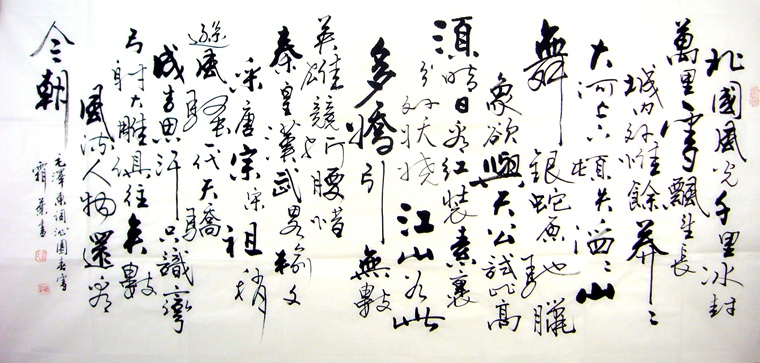 北國風光千里冰封
萬里雪飄望長
城內外惟餘莽〻
大河上下頓失滔〻山
舞銀蛇原馳臘
象欲與天公試比高
須晴日看紅裝素裹
分外妖嬈江山如此
多嬌引無數
英雄競折腰惜
秦皇漢武略輸文
采唐宗宋祖稍
遜風騷一代天驕
成吉思汗只識彎
弓射大雕俱往矣數
風流人物還看
今朝
毛澤東詞沁園春雪
霜葉書